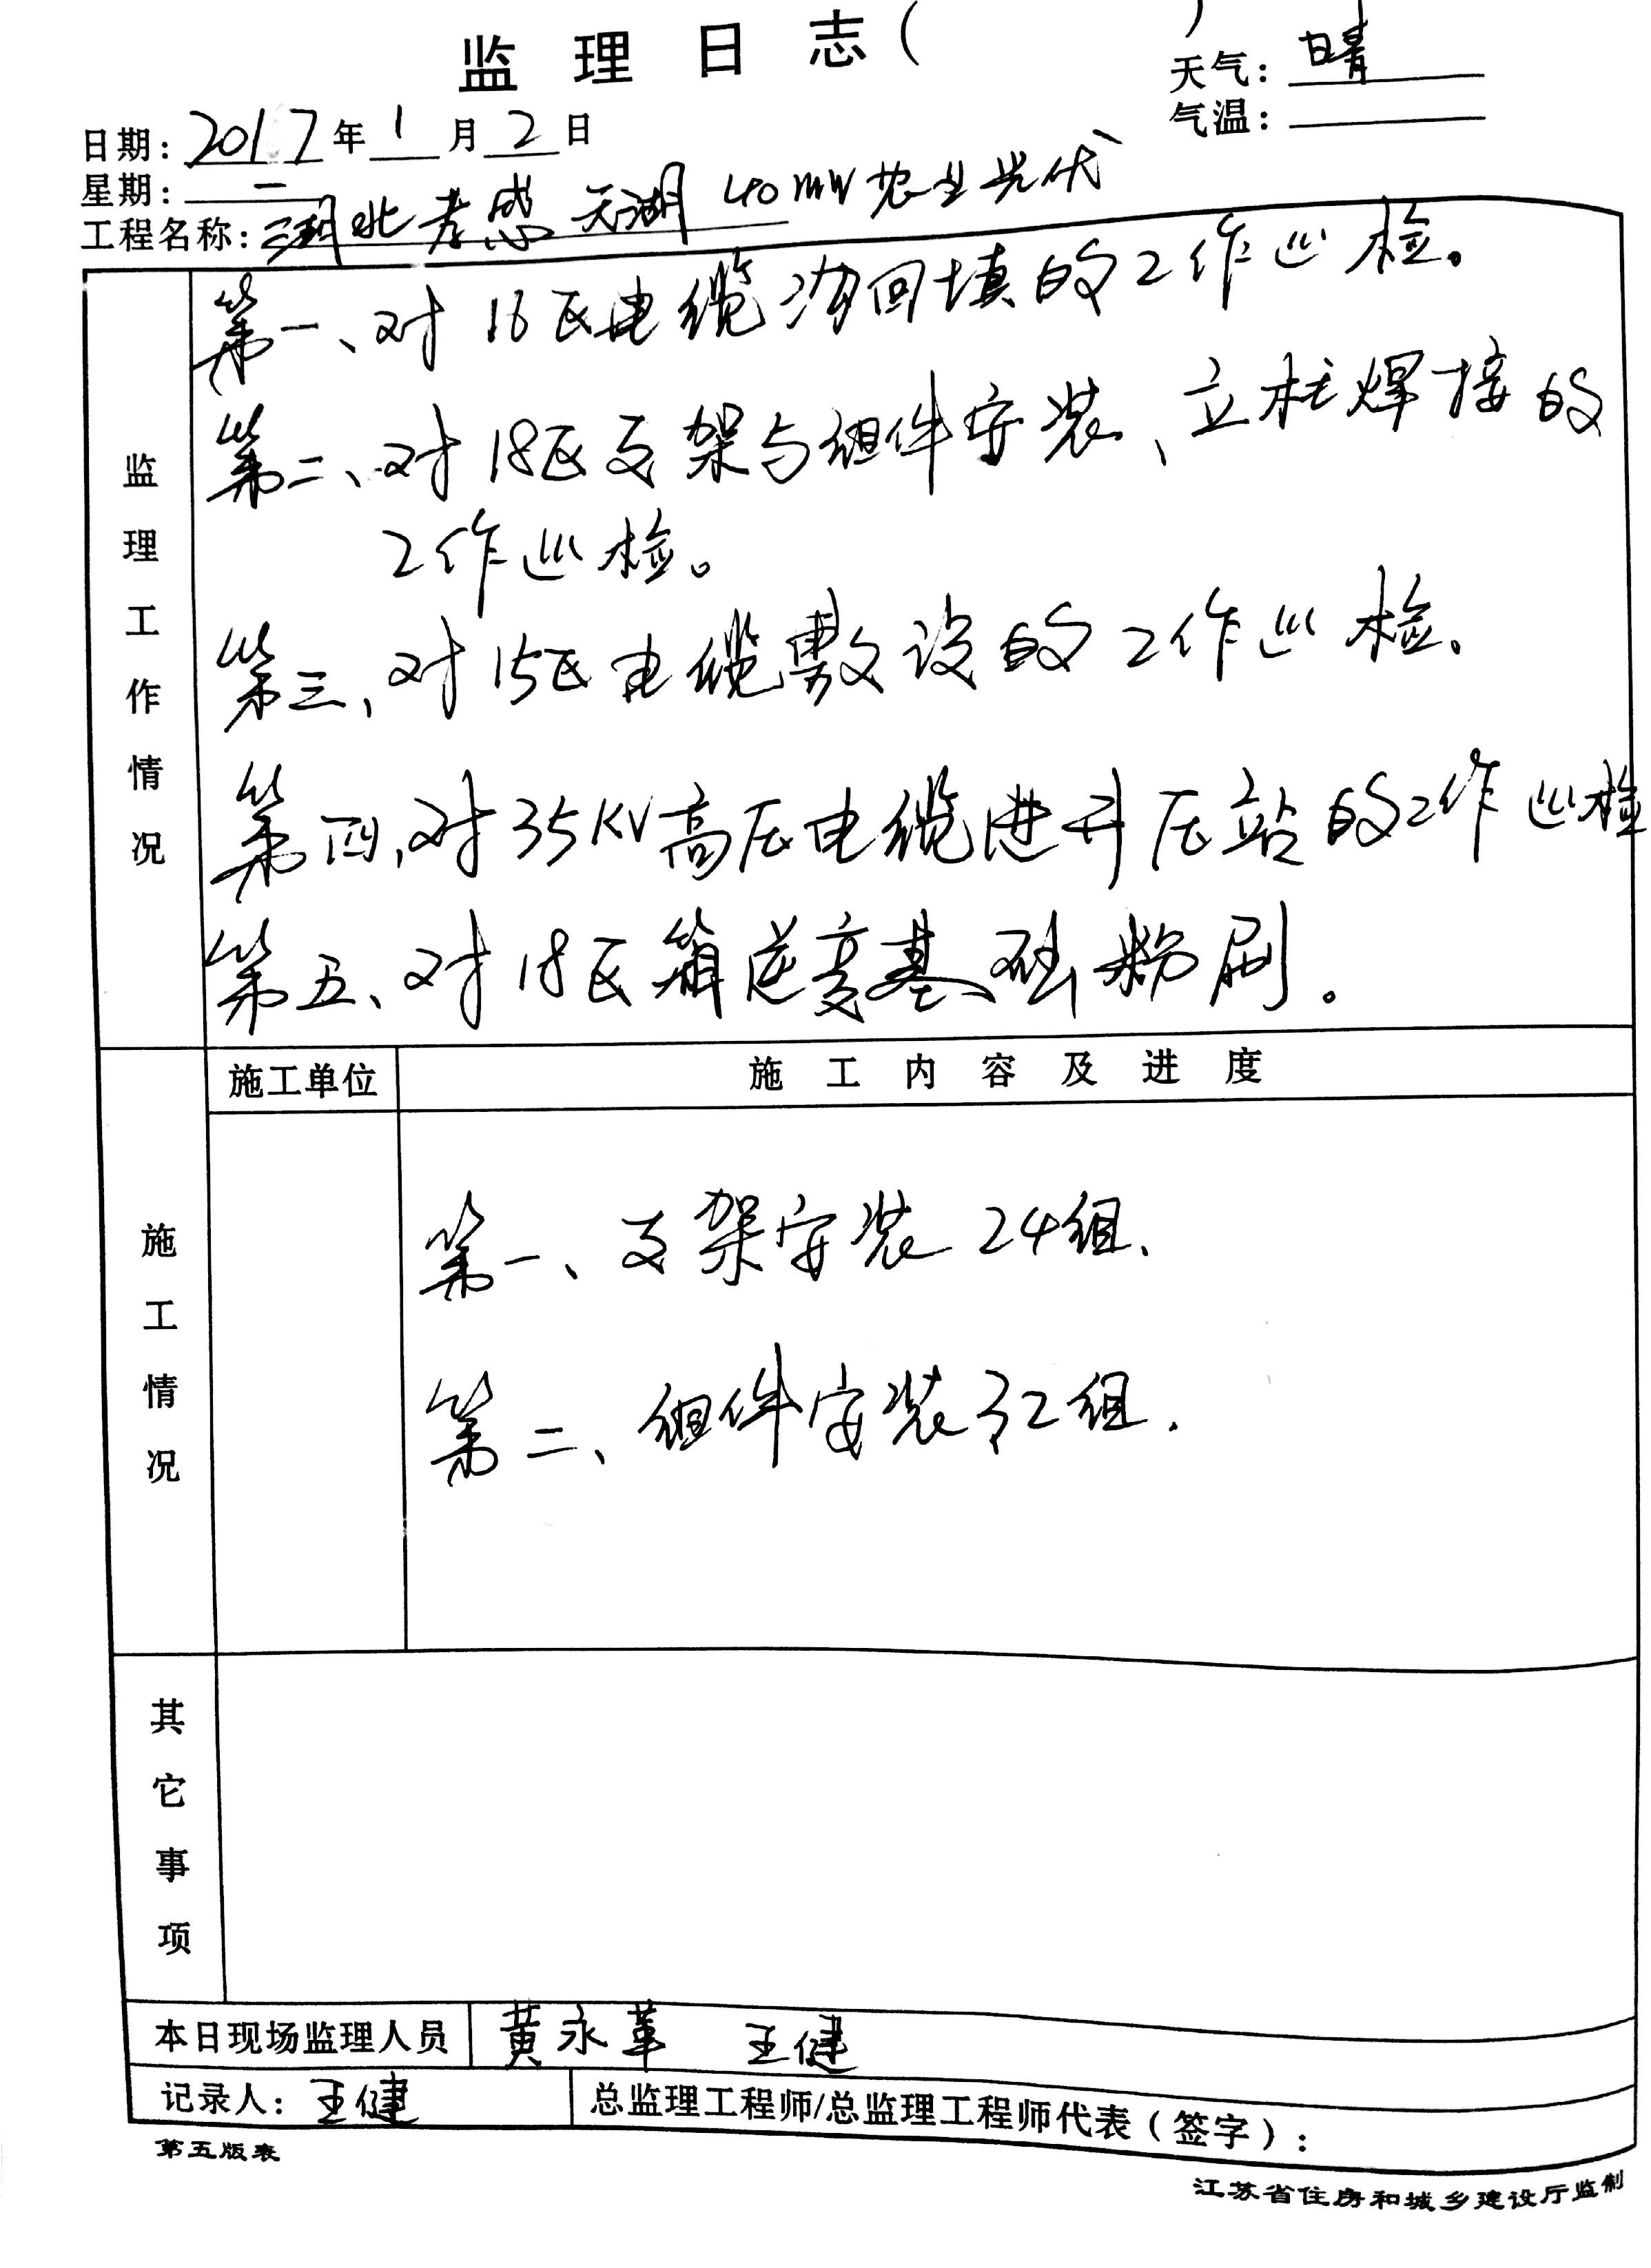 监理日志（ ）
天气：晴
气温：
日期：2017年1月2日
星期：一
工程名称：湖北孝感天湖40MW农业光伏
监理工作情况
第一、对16区电缆沟回填的工作巡检。
第二、对18区支架与组件安装、立柱焊接的
工作巡检。
第三、对15区电缆敷设的工作巡检、
第四、对35KV高压电缆进升压站的工作巡检
第五、对18区箱逆变基础粉刷。
施工情况
施工单位 施工内容及进度
第一、支架安装24组、
第二、组件安装32组.
其它事项
本日现场监理人员 黄永革 王健
记录人：王健 总监理工程师/总监理工程师代表（签字）：
第五版表
江苏省住房和城乡建设厅监制